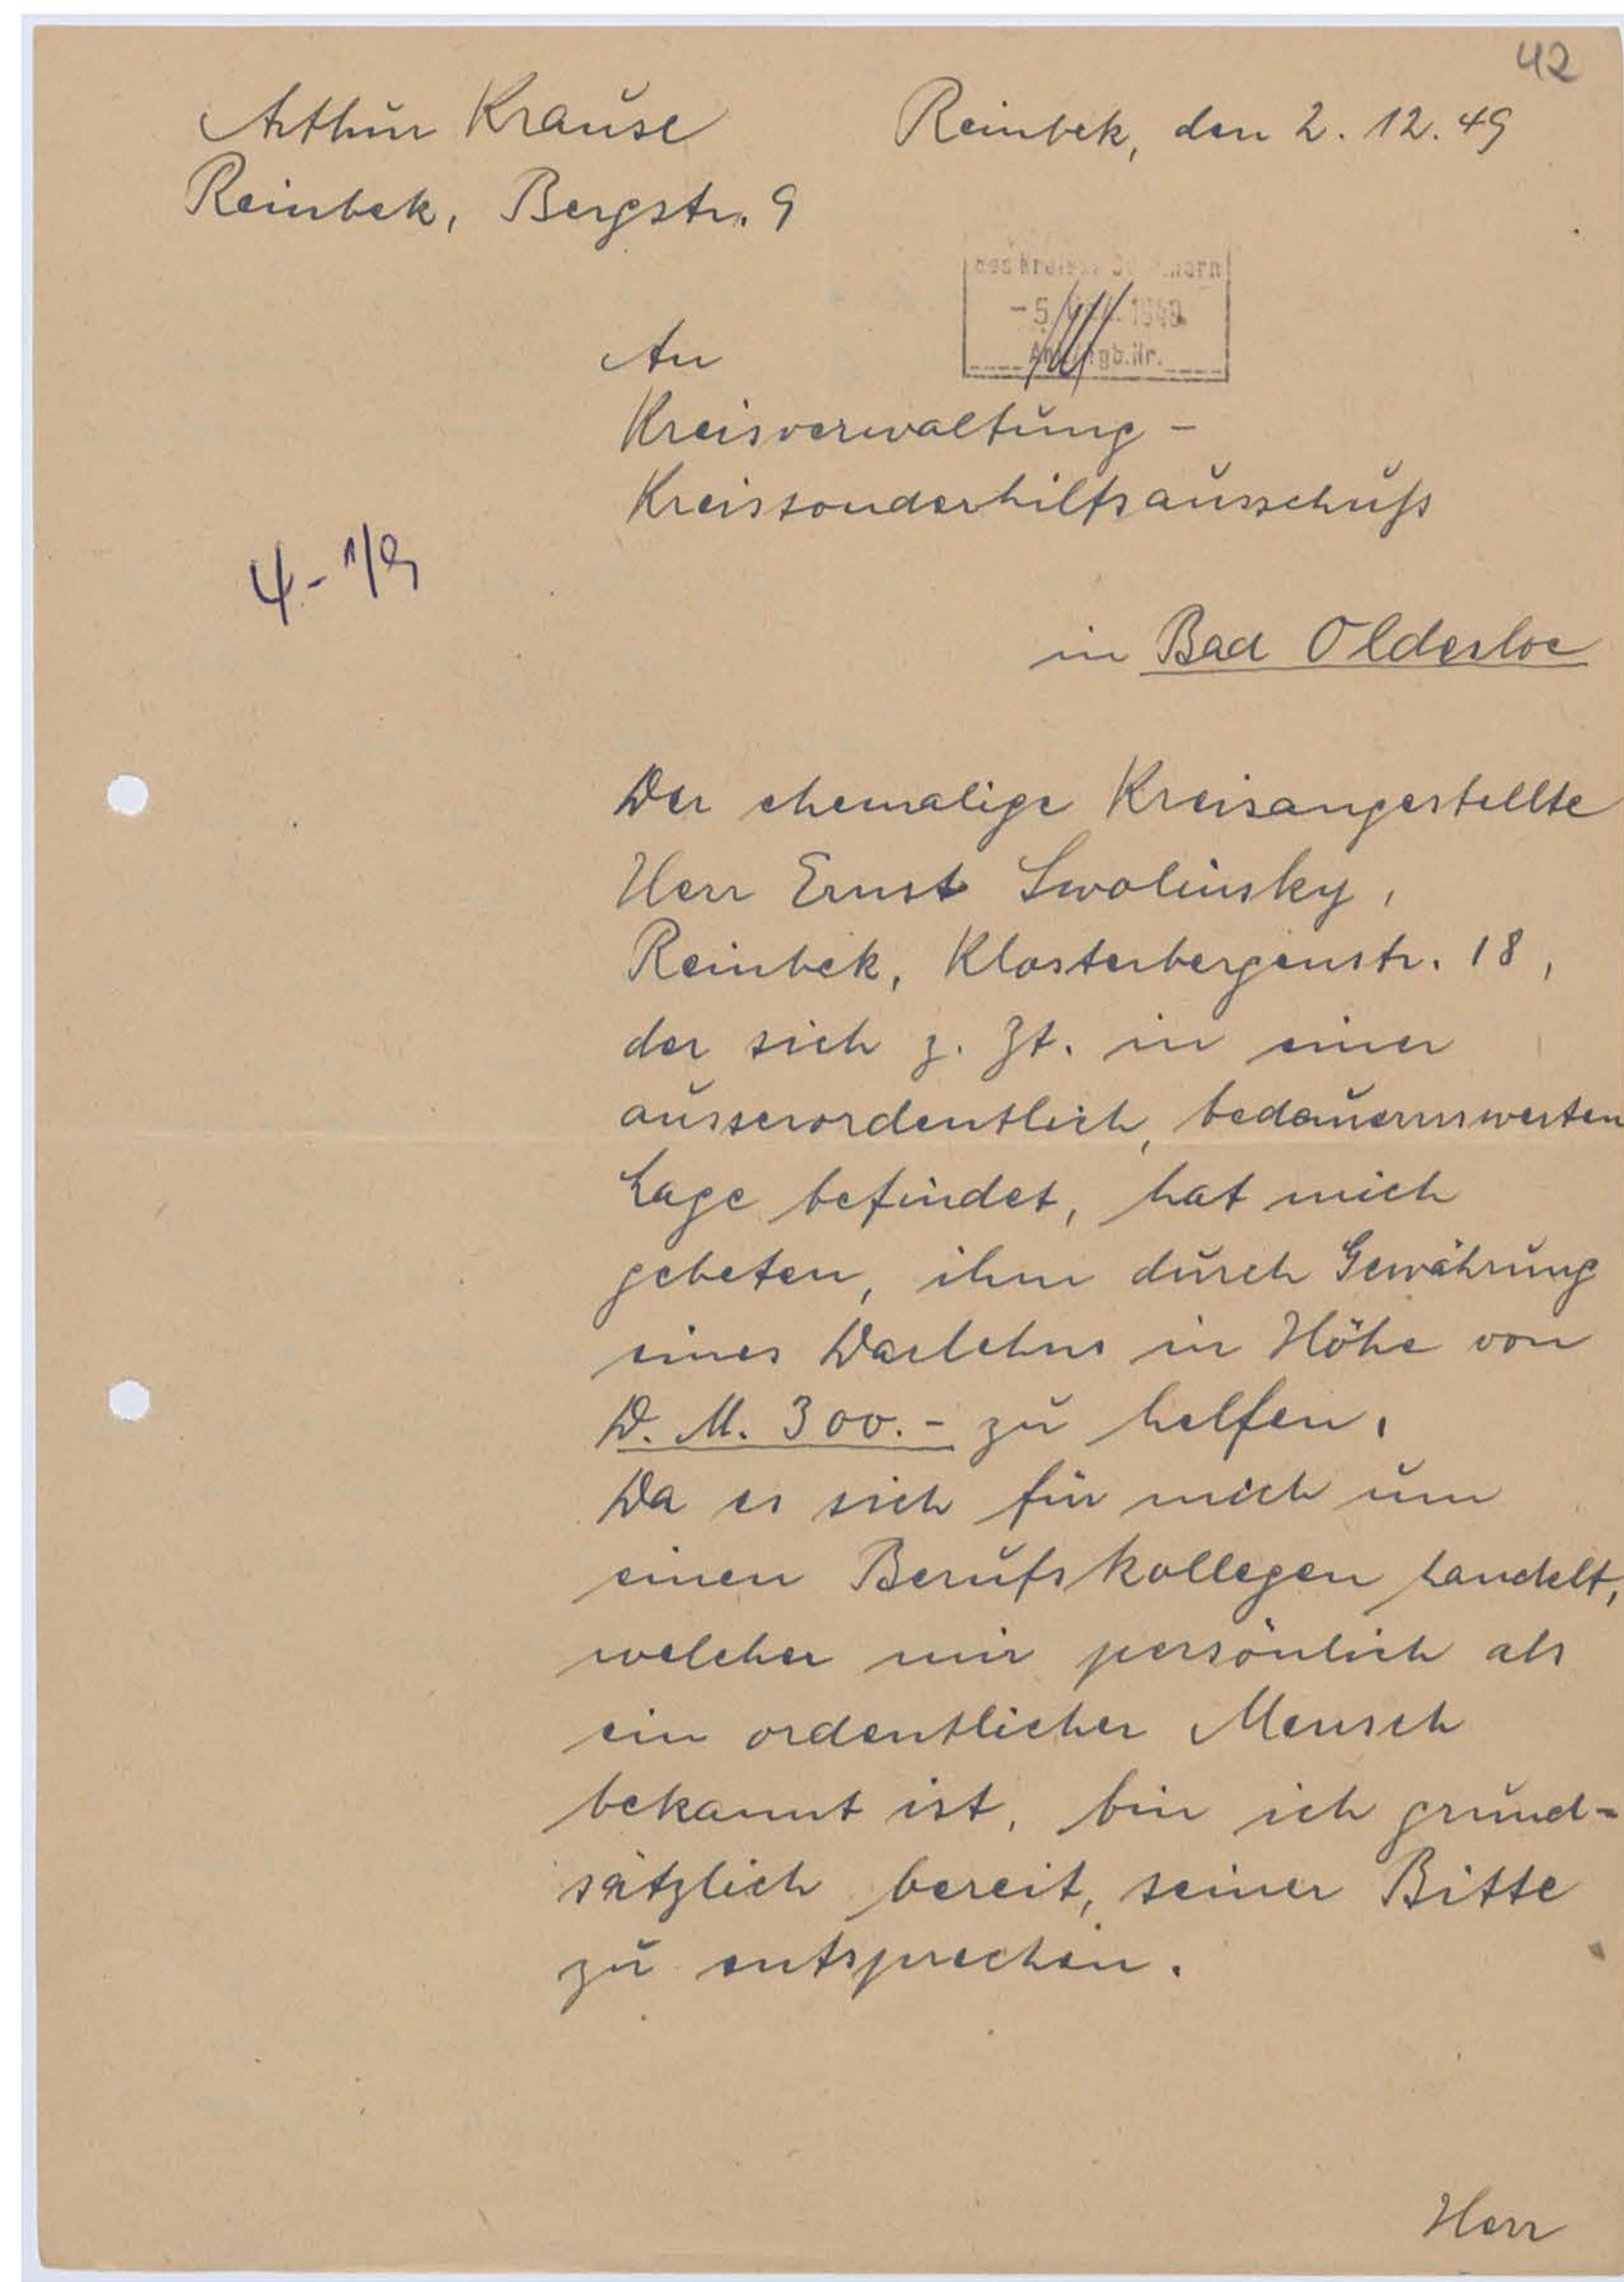 42
Arthur Krause
Reinbek, den 2. 12. 49
Reinbek, Bergstr. 9
des Kreises
- 5. 1949
An
Kreisverwaltung -
Kreissonderhilfsausschuß
4-1/9
in Bad Oldesloe
Der ehemalige Kreisangestellte
Herr Ernst Swolinsky,
Reinbek, Klosterbergenstr. 18,
der sich z. Zt. in einer
ausserordentlich, bedauernswerten
Lage befindet, hat mich
gebeten, ihm durch Gewährung
eines Darlehns in Höhe von
D. M. 300.- zu helfen.
Da es sich für mich um
einen Berufskollegen handelt,
welcher mir persönlich als
ein ordentlicher Mensch
bekannt ist, bin ich grund=
sätzlich bereit, seiner Bitte
zu entsprechen.
Herr